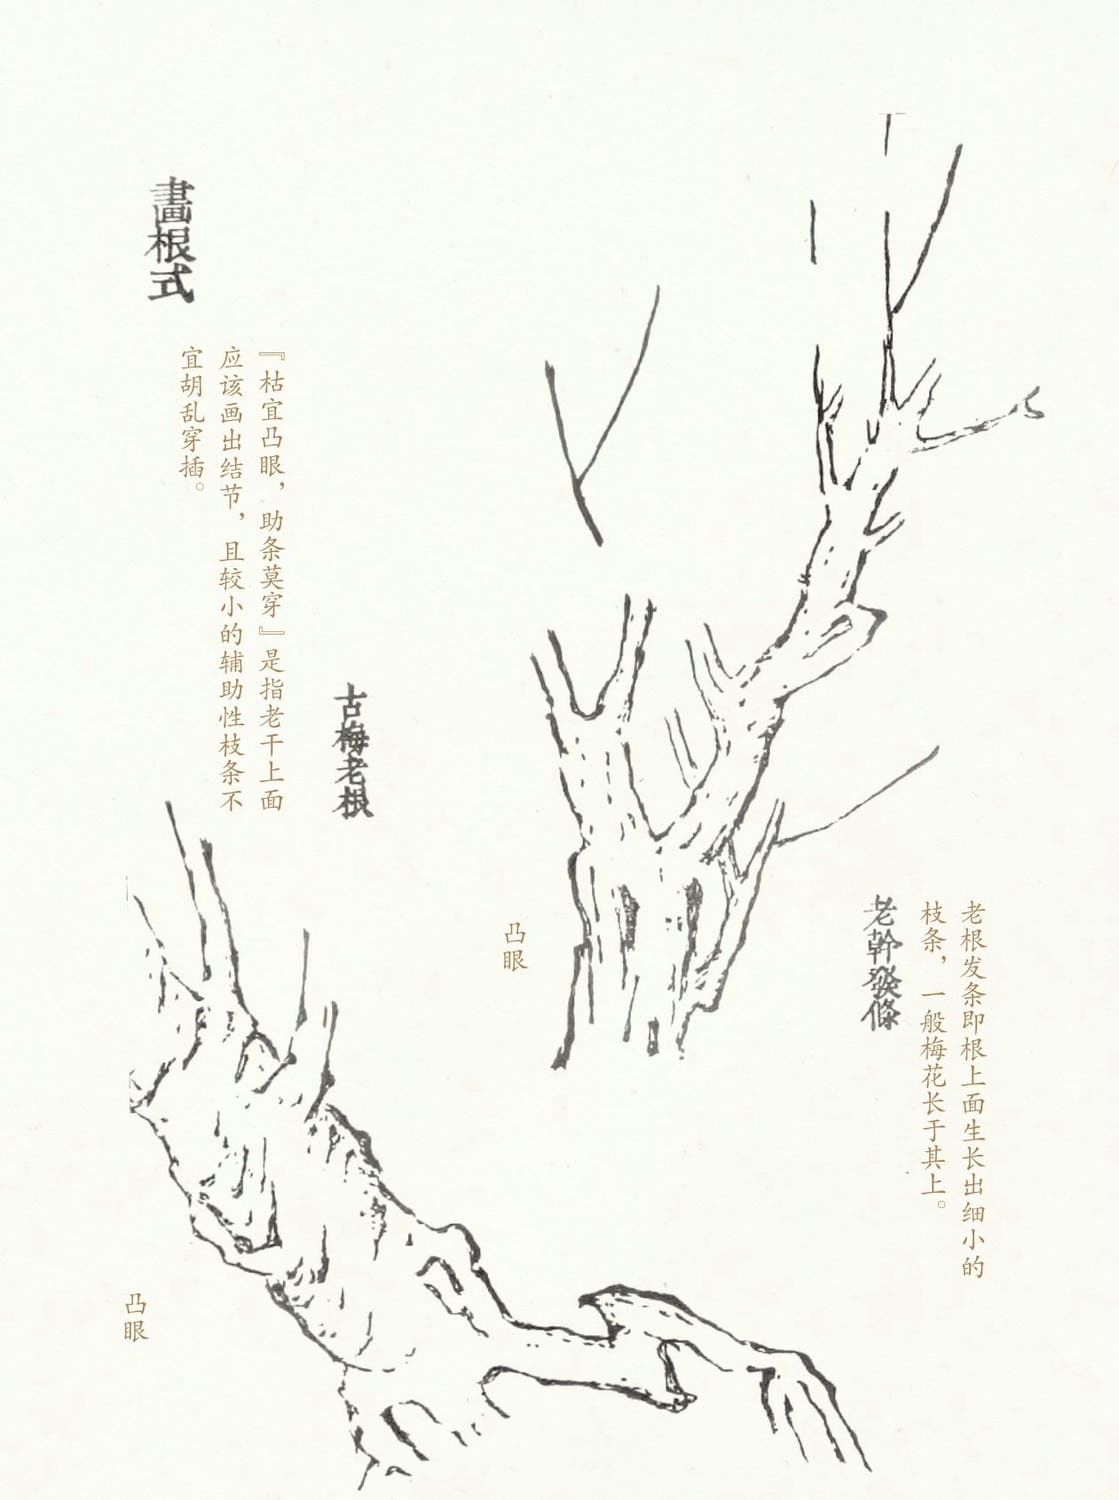 畫根式
『枯宜凸眼，助条莫穿』是指老干上面
应该画出结节，且较小的辅助性枝条不
宜胡乱穿插。
古梅老根
凸眼
老幹發條
老根发条即根上面生长出细小的
枝条，一般梅花长于其上。
凸眼